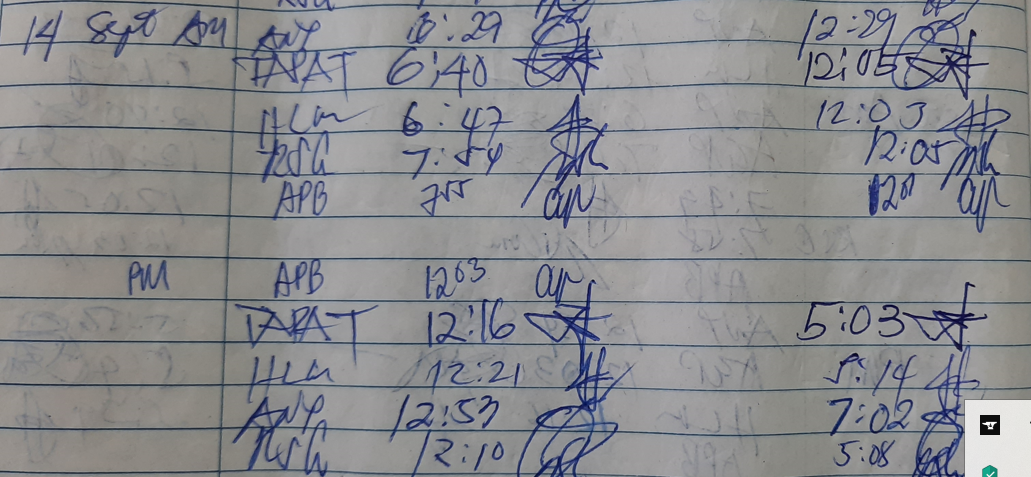 14 Sept AM ANP 6:29 12:29
TAPAT 6:40 12:05
HLM 6:47 12:03
RSG 7:54 12:05
APB 755 1201 ap
PM APB 1203 ap
TAPAT 12:16 5:03
HLM 12:21 5:14
ANP 12:53 7:02
RSG 12:10 5:08